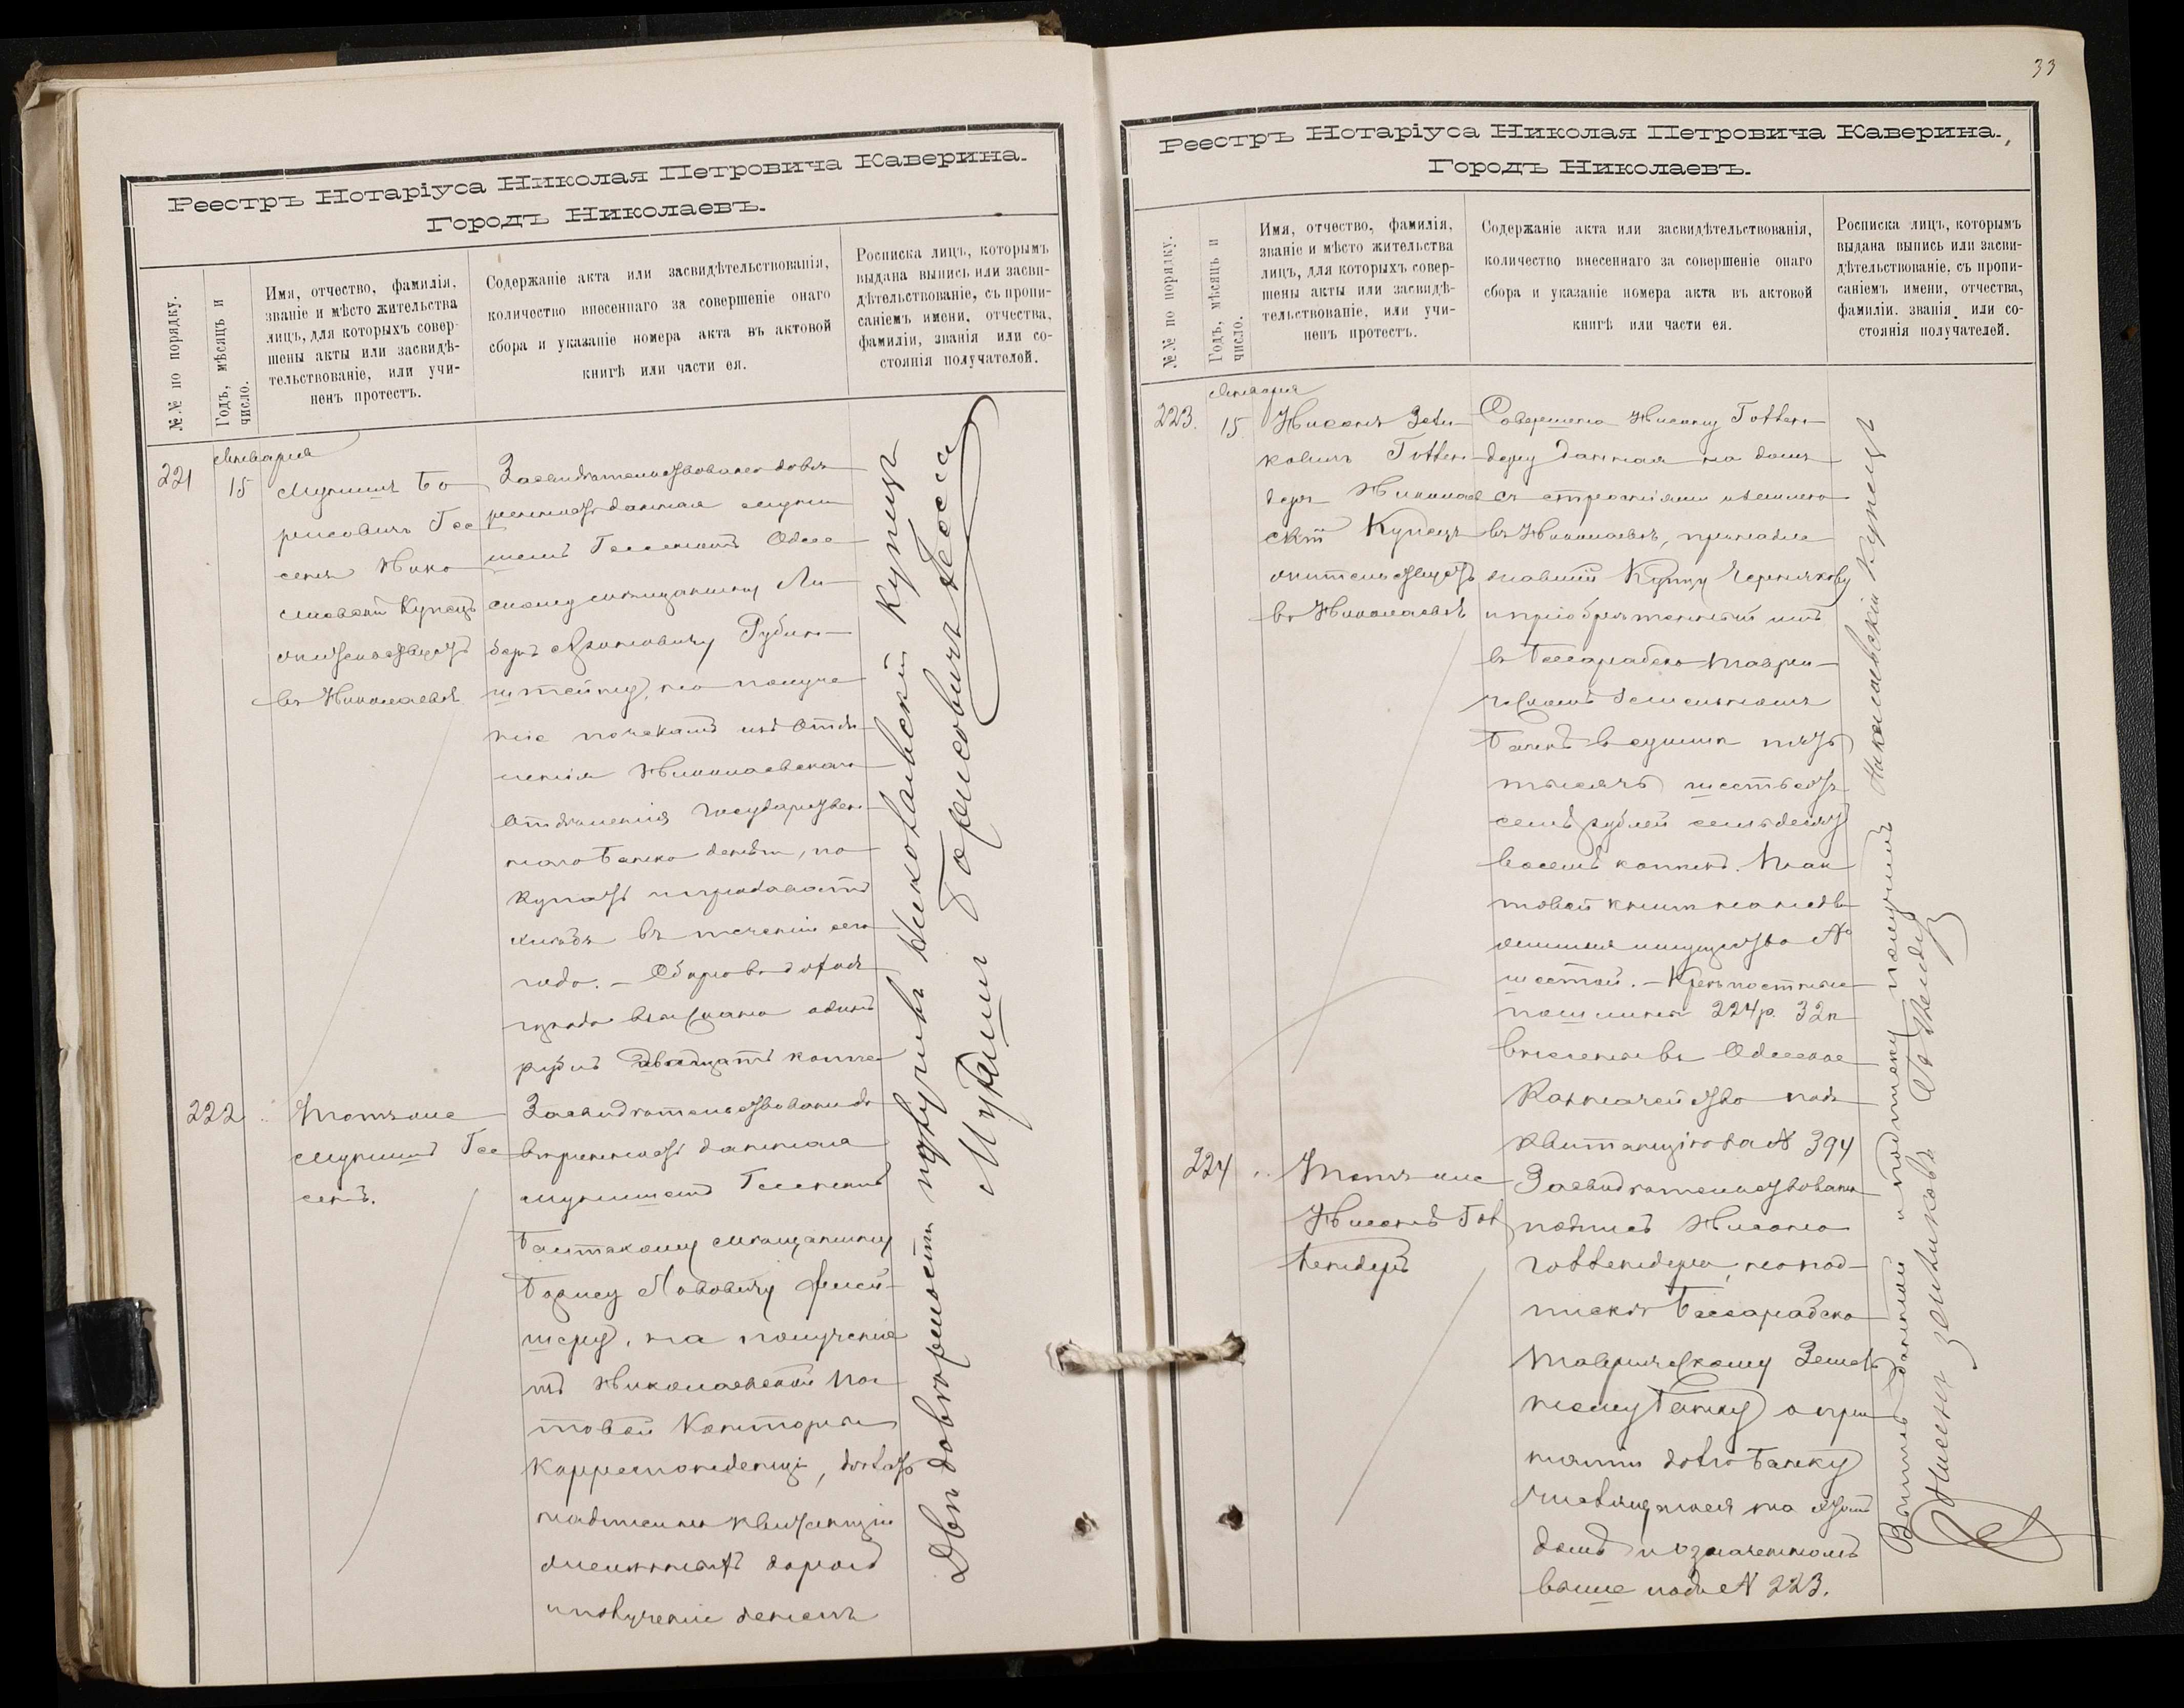 Реестръ Нотаріуса Николая Петровича Каверина.
Городъ Николаевъ.
№.№ по порядку.
Годъ, мѣсяцъ и число.
Имя, отчество, фамилія,
званіе и мѣсто жительства
лицъ, для которыхъ совер-
шены акты или засвидѣ-
тельствованіе, или учи-
ненъ протестъ.
Содержаніе акта или засвидѣтельствованія,
количество внесеннаго за совершеніе онаго
сбора и указаніе номера акта въ актовой
книгѣ или части ея.
Росписка лицъ, которымъ
выдана выпись или засви-
дѣтельствованіе, съ пропи-
саніемъ имени, отчества,
фамиліи, званія или со-
стоянія получателей.
Января
221
15
Мунишъ Бо
рисовичъ Гес
сенъ Нико
лаевскій Купецъ
жительствуетъ
въ Николаевѣ
Засвидѣтельствована довѣ
ренность данная Муни
шемъ Гессеномъ Одес
скому мѣщанину
Рубин
штейну, на получе
ніе по чекамъ изъ
Николаевскаго
Отдѣленія Государствен
наго Банка денегъ, по
купать и продавать
въ теченіи сего
года. –
взыскано одинъ
рубль двадцать копѣе
222
Тотъ же
Мунишъ Гес
сенъ.
Засвидѣтельствована до
вѣренность данная
Мунишемъ Гессеномъ
мѣщанину
Борису Львовичу Фиш
шеру, на полученіе
изъ Николаевской Поч
товой Конторы
корреспонденціи,
желѣзныхъ дорогъ
и полученіе денегъ
Двѣ довѣренности получилъ Николаевскій купецъ
Мунишъ Борисовичъ Гессенъ
33
Реестръ Нотаріуса Николая Петровича Каверина.,
Городъ Николаевъ.
№.№ по порядку.
Годъ, мѣсяцъ и число.
Имя, отчество, фамилія,
званіе и мѣсто жительства
лицъ, для которыхъ совер-
шены акты или засвидѣ-
тельствованіе, или учи-
ненъ протестъ.
Содержаніе акта или засвидѣтельствованія,
количество внесеннаго за совершеніе онаго
сбора и указаніе номера акта въ актовой
книгѣ или части ея.
Росписка лицъ, которымъ
выдана выпись или засви-
дѣтельствованіе, съ пропи-
саніемъ имени, отчества,
фамиліи. званія. или со-
стоянія получателей.
Января
223.
15
Нисонъ Зели
ковичъ Готтен
деръ Николаев
скій Купецъ
жительствуетъ
въ Николаевѣ
Совершена Нисону Готтен
деру данная на домъ
съ строеніями и землею
въ Николаевѣ, принадле
жавшій Купцу Чернякову
и пріобрѣтенный имъ
въ Бессарабско Таври
ческомъ Земельномъ
Банкѣ въ суммѣ пять
тысячъ шестьсотъ
семь рублей семьдесятъ
восемь копѣекъ. По ак
товой книгѣ на недви
жимыя имущества №
шестой. – Крѣпостныя
пошлины 224р. 32к
внесены въ Одесское
Казначейство подъ
квитанцію за № 394
224
Тотъ же
Нисонъ Гот
тендеръ
Засвидѣтельствована
подпись Нисона
Готтендера, на под
пискѣ Бессарабско
Таврическому Земель
ному Банку о при
нятіи долга Банку
на этомъ
домѣ и означенномъ
выше подъ № 223.
Выпись данной и подписку получилъ Николаевскій купецъ
Нисонъ Зеликовъ Готтендеръ